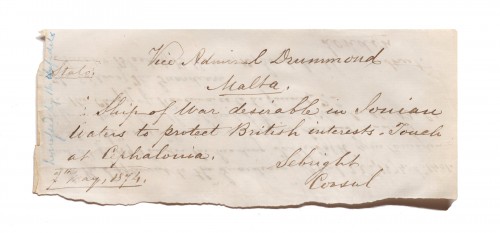 Vice Admiral Drummond
State.
Malta.
Ship of War desirable in Ionian
Waters to protect British interests. Touch
at Cephalonia.
Sebright
7th May, 1874.
Consul